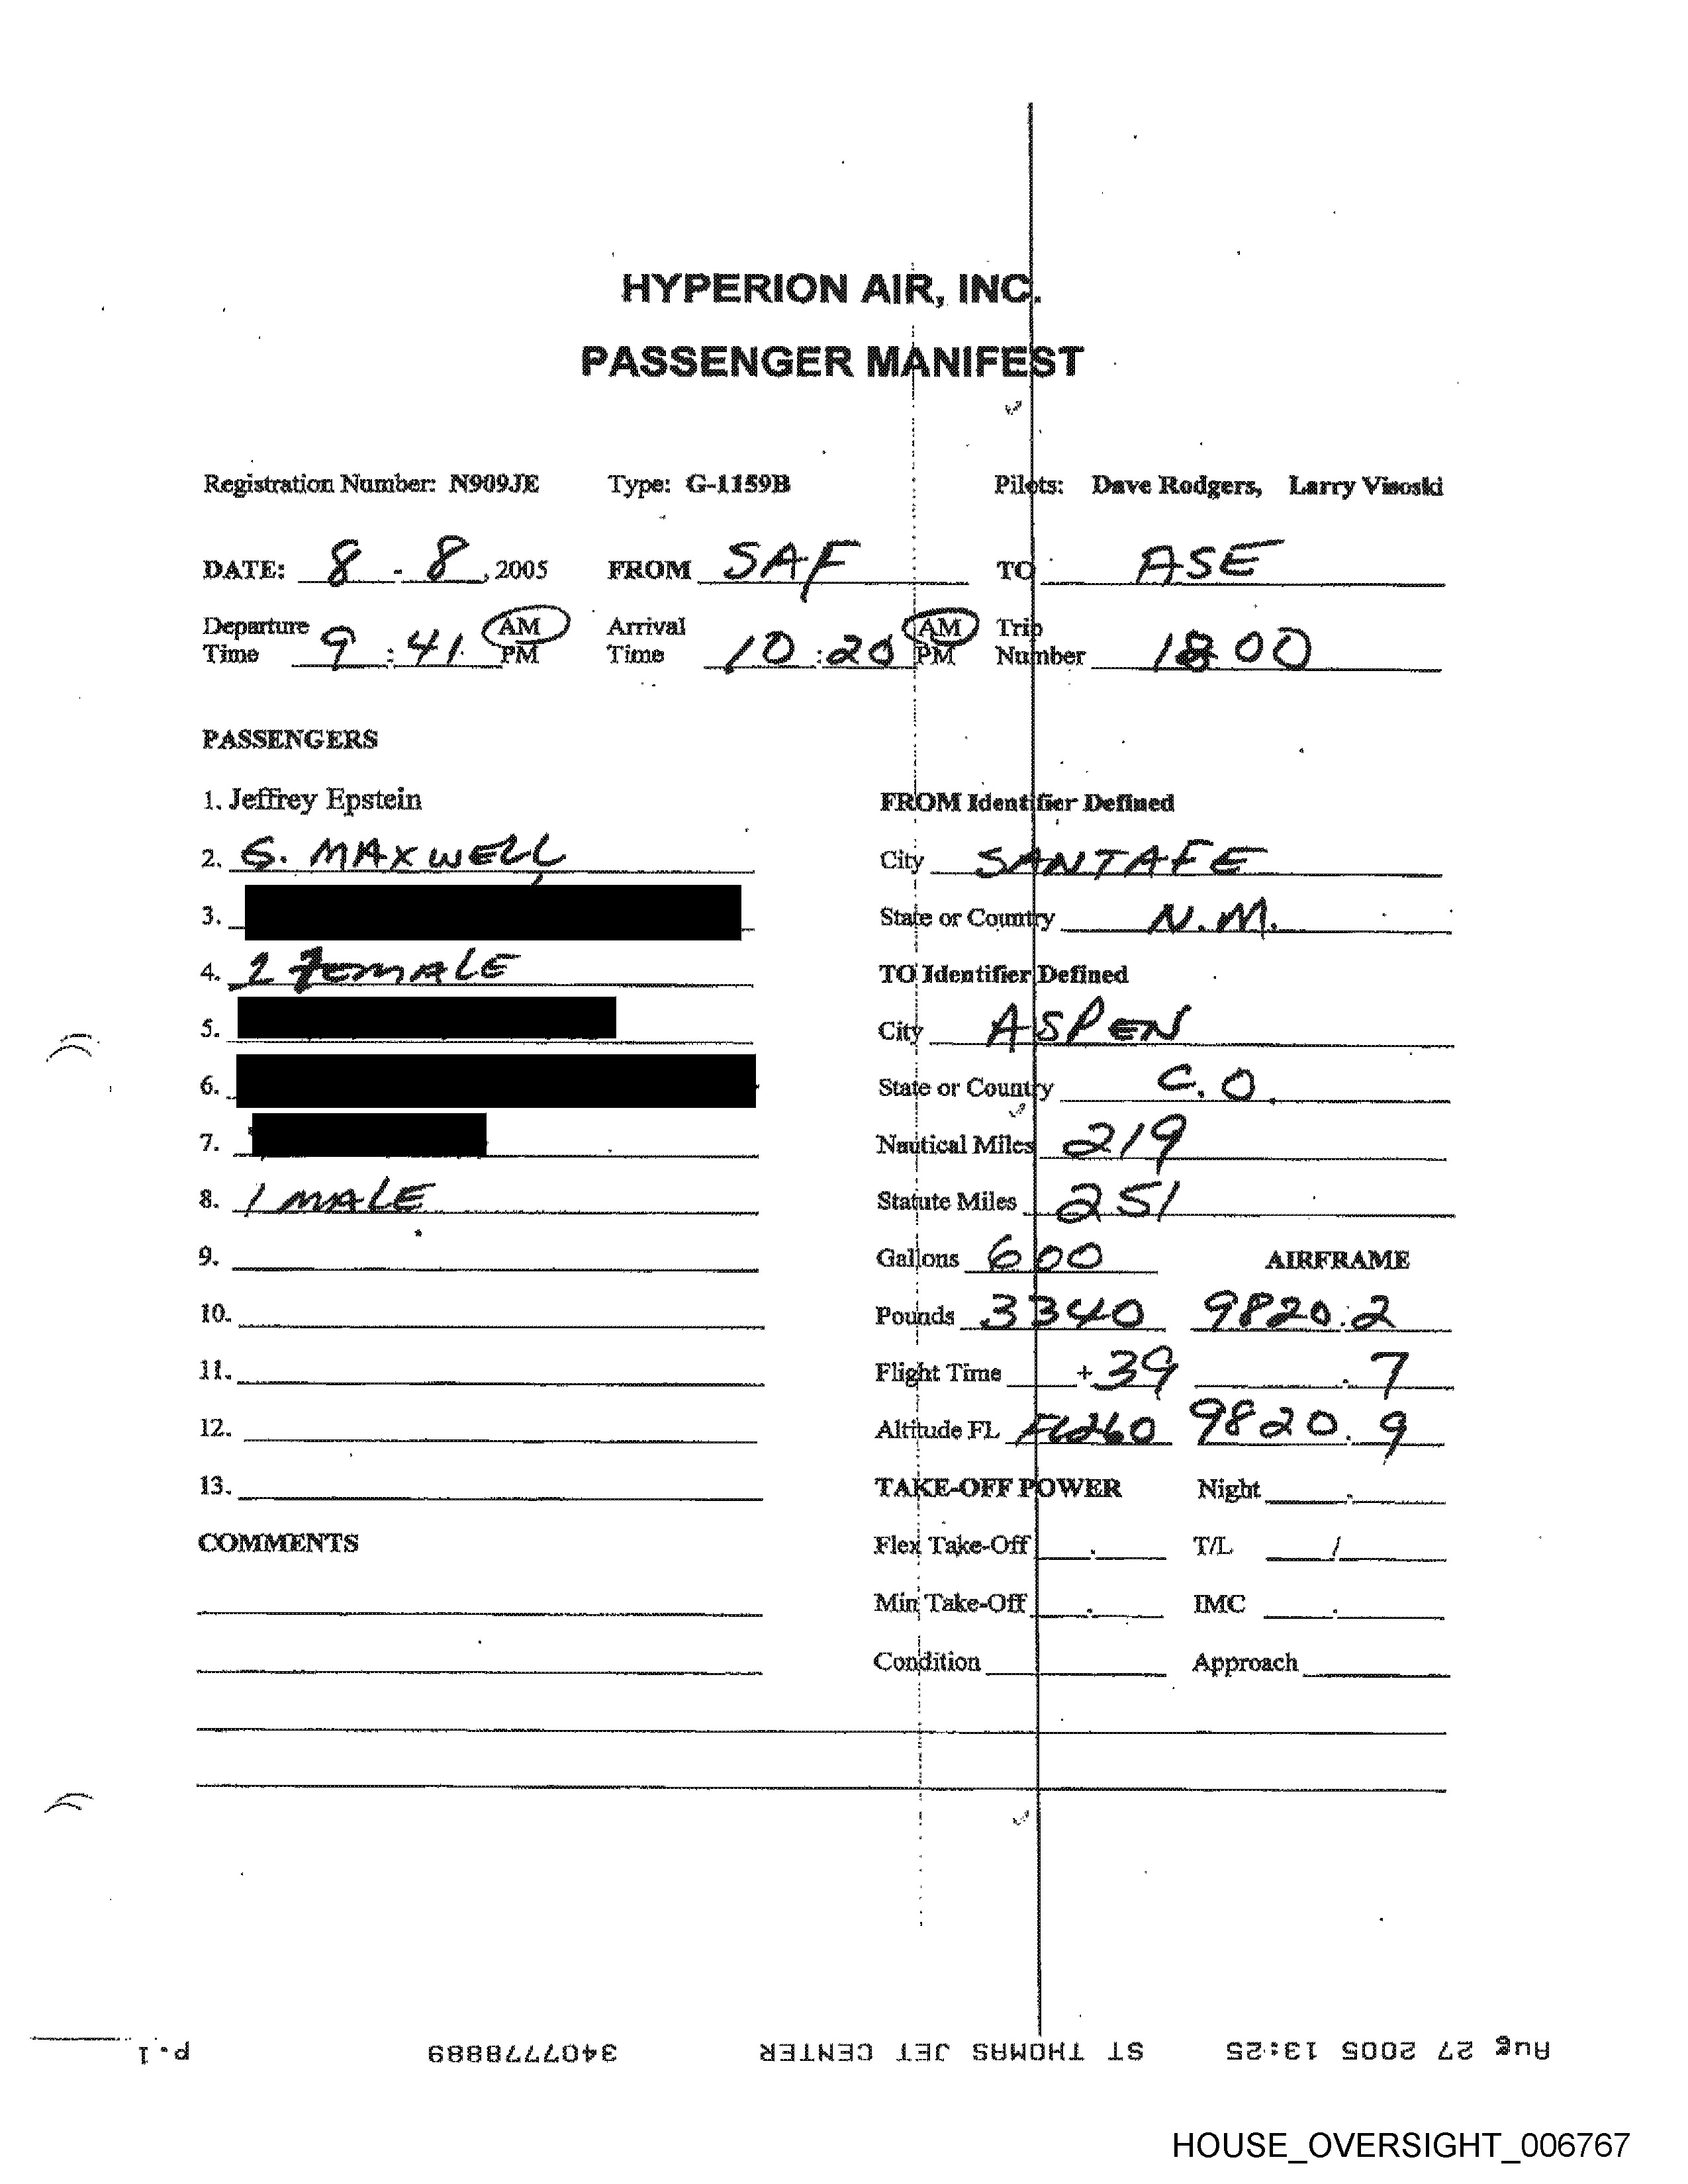 HYPERION AIR, INC.
PASSENGER MANIFEST
Registration Number: N909JE Type: G-1159B Pilots: Dave Rodgers, Larry Visoski
DATE: 8 - 8, 2005 FROM SAF TO ASE
Departure Time 9 : 41 AM PM Arrival Time 10 : 20 AM PM Trip Number 1800
PASSENGERS
1. Jeffrey Epstein
2. G. MAXWELL
3.
4. 1 FEMALE
5.
6.
7.
8. 1 MALE
9.
10.
11.
12.
13.
COMMENTS
FROM Identifier Defined
City SANTA FE
State or Country N.M.
TO Identifier Defined
City ASPEN
State or Country C.O.
Nautical Miles 219
Statute Miles 251
Gallons 600 AIRFRAME
Pounds 3340 9820.2
Flight Time + 39 .7
Altitude FL FL260 9820.9
TAKE-OFF POWER Night .
Flex Take-Off . T/L /
Min Take-Off . IMC .
Condition Approach
Aug 27 2005 13:25 ST THOMAS JET CENTER 3407778889 p.1
HOUSE_OVERSIGHT_006767